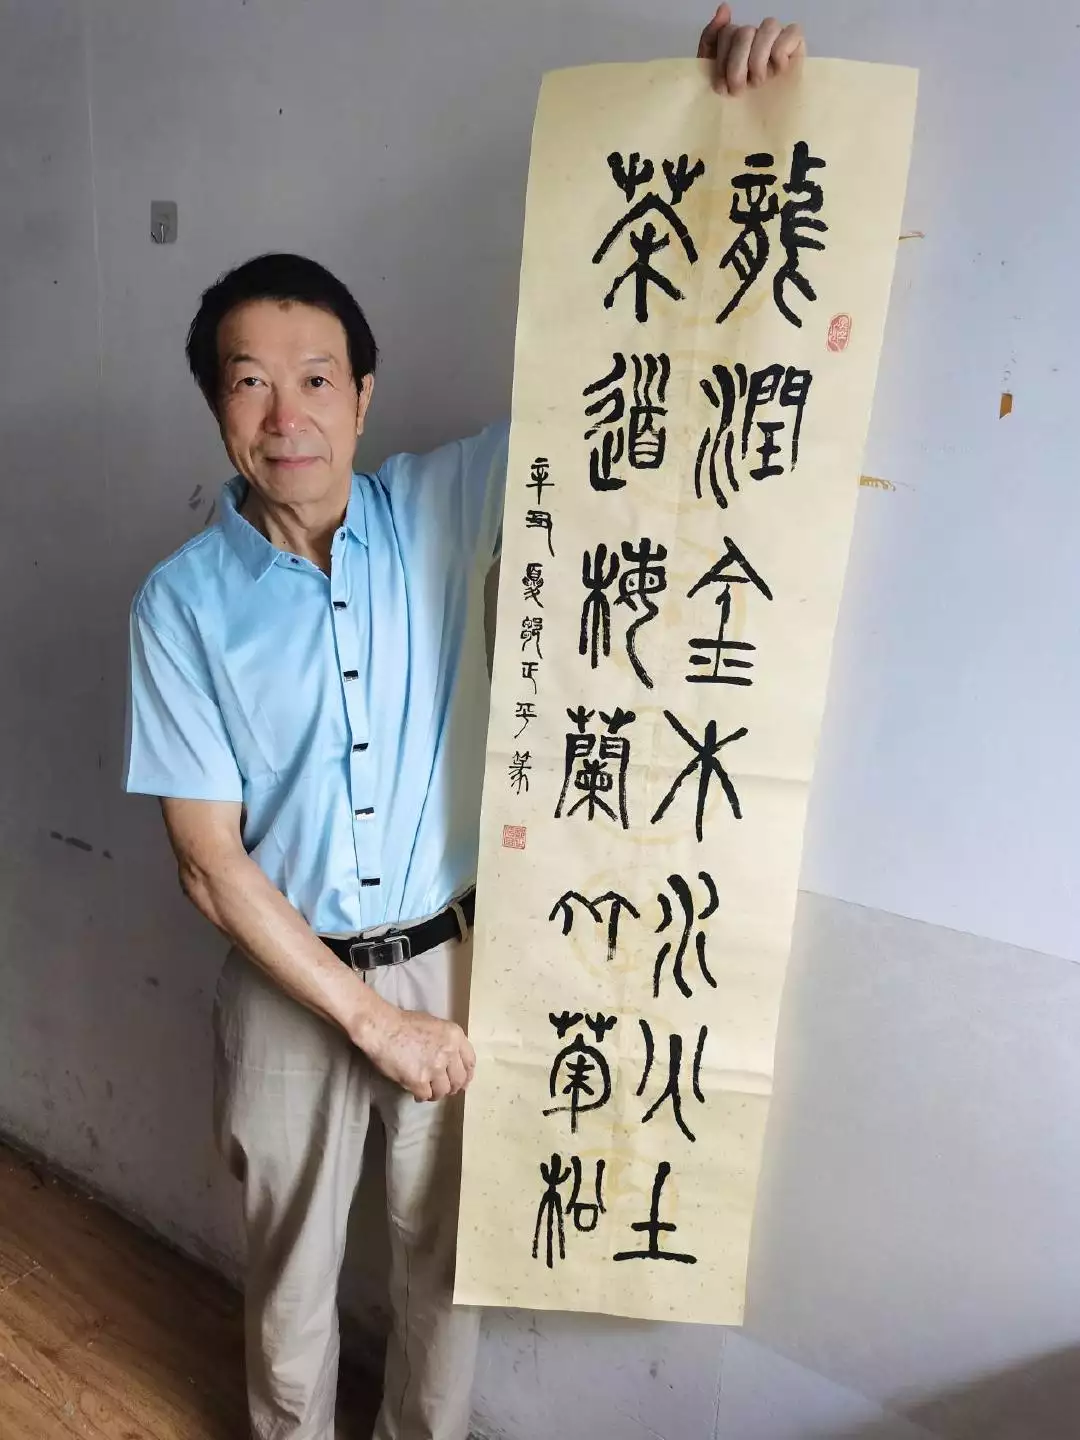 龍潤金木水火土
茶道梅蘭竹菊松
辛丑夏
正平篆